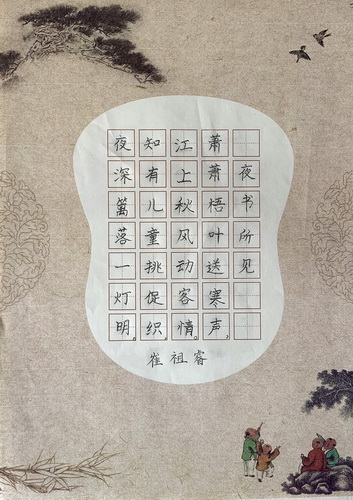 夜书所见
萧萧梧叶送寒声，
江上秋风动客情。
知有儿童挑促织，
夜深篱落一灯明。
崔祖睿